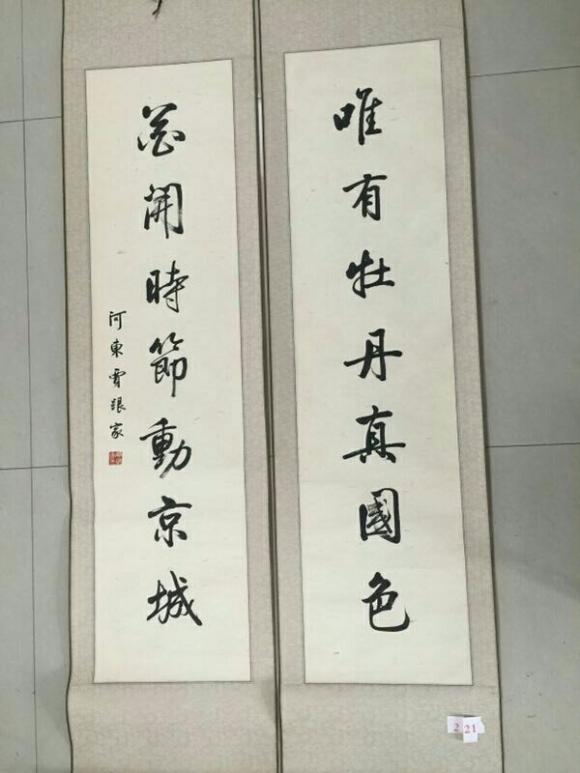 唯有牡丹真國色
花開時節動京城
河東賈銀家
2 21